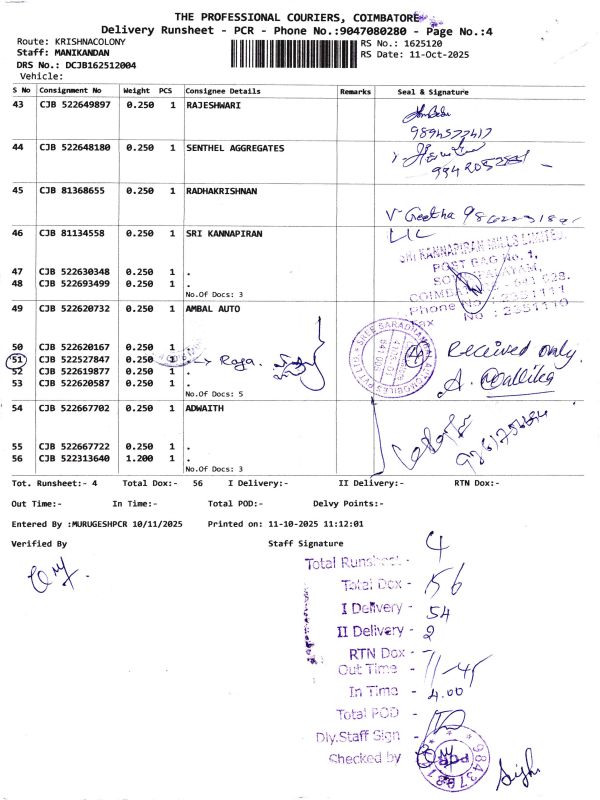 THE PROFESSIONAL COURIERS, COIMBATORE
Delivery Runsheet - PCR - Phone No.:9047080280 - Page No.:4
Route: KRISHNACOLONY
Staff: MANIKANDAN
DRS No.: DCJB162512004
Vehicle:
RS No.: 1625120
RS Date: 11-Oct-2025
S No Consignment No Weight PCS Consignee Details Remarks Seal & Signature
43 CJB 522649897 0.250 1 RAJESHWARI
9894577417
44 CJB 522648180 0.250 1 SENTHEL AGGREGATES
45 CJB 81368655 0.250 1 RADHAKRISHNAN
V Geetha
46 CJB 81134558 0.250 1 SRI KANNAPIRAN
SRI KANNAPIRAN MILLS LIMITED,
POST BAG No. 1,
47 CJB 522630348 0.250 1 .
48 CJB 522693499 0.250 1 .
No.Of Docs: 3
Phone No : 2351111
Fax No : 2351110
49 CJB 522620732 0.250 1 AMBAL AUTO
50 CJB 522620167 0.250 1 .
51 CJB 522527847 0.250 1 . → Raja.
52 CJB 522619877 0.250 1 .
53 CJB 522620587 0.250 1 .
No.Of Docs: 5
4 Received only
A. Mallika
54 CJB 522667702 0.250 1 ADWAITH
55 CJB 522667722 0.250 1 .
56 CJB 522313640 1.200 1 .
No.Of Docs: 3
Tot. Runsheet:- 4 Total Dox:- 56 I Delivery:- II Delivery:- RTN Dox:-
Out Time:- In Time:- Total POD:- Delvy Points:-
Entered By :MURUGESHPCR 10/11/2025 Printed on: 11-10-2025 11:12:01
Verified By Staff Signature
Total Runsheet - 4
Total Dox - 56
I Delivery - 54
II Delivery - 2
RTN Dox -
Out Time - 11-45
In Time - 4.00
Total POD -
Dly.Staff Sign -
Checked by